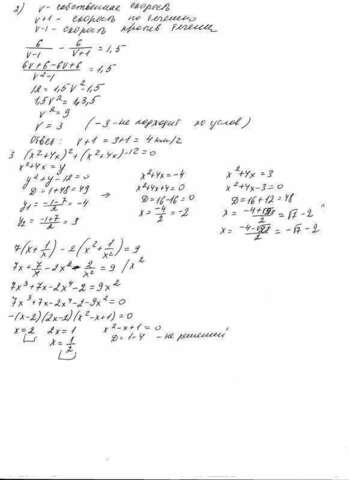 2) v - собственная скорость
v+1 - скорость по течению
v-1 - скорость против течения
6/(v-1) - 6/(v+1) = 1,5
(6v+6-6v+6)/(v²-1) = 1,5
12 = 1,5v² - 1,5
1,5v² = 13,5
v² = 9
v = 3 (-3 - не подходит по услов)
Ответ: v+1 = 3+1 = 4 км/ч
3 (x²+4x)² + (x²+4x) - 12 = 0
x²+4x = y
y²+y-12 = 0
D = 1+48 = 49
y₁ = (-1-7)/2 = -4
y₂ = (-1+7)/2 = 3
x²+4x = -4
x²+4x+4 = 0
D = 16-16 = 0
x = -4/2 = -2
x²+4x = 3
x²+4x-3 = 0
D = 16+12 = 28
x = = √7 - 2
x = = -√7 - 2
7(x + 1/x) - 2(x² + 1/x²) = 9
7x + 7/x - 2x² - 2/x² = 9 / x²
7x³ + 7x - 2x⁴ - 2 = 9x²
7x³ + 7x - 2x⁴ - 2 - 9x² = 0
-(x-2)(2x-1)(x²-x+1) = 0
x = 2 2x = 1 x²-x+1 = 0
x = 1/2 D = 1-4 - не решений